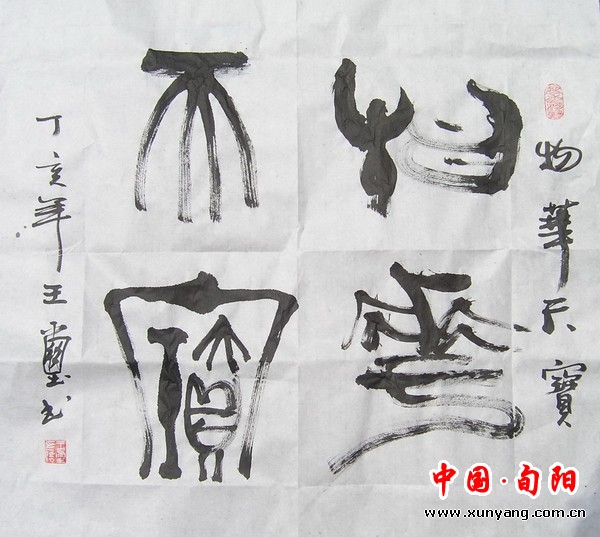 物華天寶
物華
天寶
丁亥年王璽书
中国·旬阳
www.xunyang.com.cn